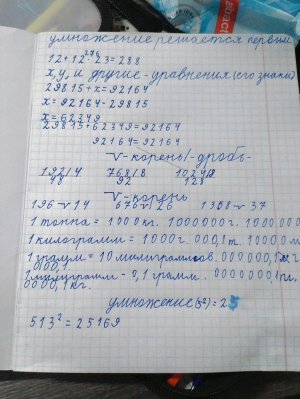 умножение решается первым
276
12+12·23=288
x, y, и другие - уравнения (его знаки)
29815+x=92164
x=92164-29815
x=62349
29815+62349=92164
92164=92164
√-корень/-дробь-
192/4 768/8 1024/8
48 92 128
√-корень
196√14 676√26 1308√37
1 тонна = 1000 кг. 1000000г. 1000000
1 килограмм = 1000г 000,1т. 10000м
1 грамм = 10 миллиграммов. 000000,1
000,1.
1 миллиграмм - 0,1 грамм. 0000000,1
0000,1кг.
умножение (5²)=25
513²=25169